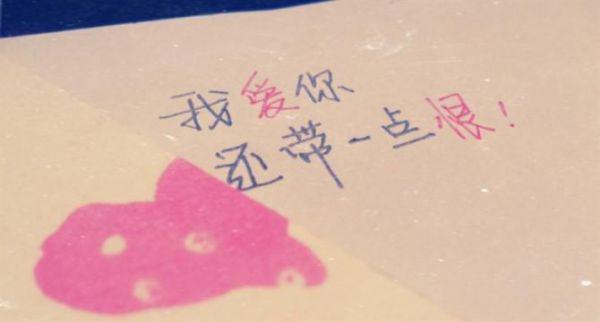 我爱你
还带一点恨!